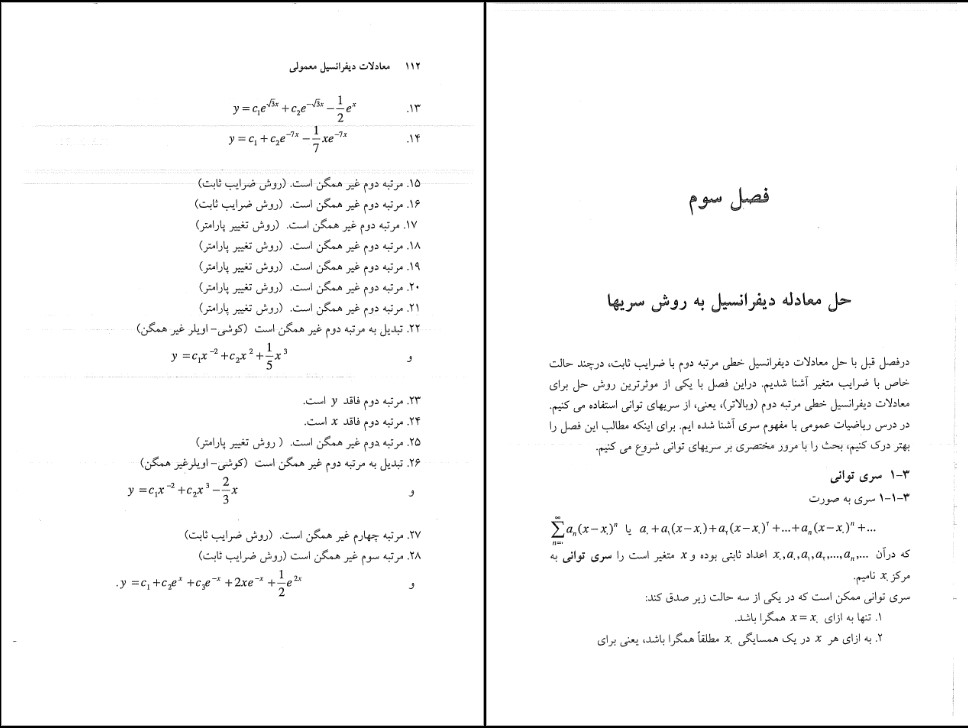 ۱۱۲ معادلات دیفرانسیل معمولی
۱۳. y = c₁e^{√3x} + c₂e^{-√3x} - \frac{1}{2}e^x
۱۴. y = c₁ + c₂e^{-7x} - \frac{1}{7}xe^{-7x}
۱۵. مرتبه دوم غیر همگن است. (روش ضرایب ثابت)
۱۶. مرتبه دوم غیر همگن است. (روش ضرایب ثابت)
۱۷. مرتبه دوم غیر همگن است. (روش تغییر پارامتر)
۱۸. مرتبه دوم غیر همگن است. (روش تغییر پارامتر)
۱۹. مرتبه دوم غیر همگن است. (روش تغییر پارامتر)
۲۰. مرتبه دوم غیر همگن است. (روش تغییر پارامتر)
۲۱. مرتبه دوم غیر همگن است. (روش تغییر پارامتر)
۲۲. تبدیل به مرتبه دوم غیر همگن است (کوشی- اویلر غیر همگن)
و y = c₁x^{-2} + c₂x^2 + \frac{1}{5}x^3
۲۳. مرتبه دوم فاقد y است.
۲۴. مرتبه دوم فاقد x است.
۲۵. مرتبه دوم غیر همگن است. ( روش تغییر پارامتر)
۲۶. تبدیل به مرتبه دوم غیر همگن است (کوشی- اویلرغیر همگن)
و y = c₁x^{-2} + c₂x^3 - \frac{2}{3}x
۲۷. مرتبه چهارم غیر همگن است. (روش ضرایب ثابت)
۲۸. مرتبه سوم غیر همگن است (روش ضرایب ثابت)
و y = c₁ + c₂e^x + c₃e^{-x} + 2xe^{-x} + \frac{1}{2}e^{2x}.
فصل سوم
حل معادله دیفرانسیل به روش سریها
درفصل قبل با حل معادلات دیفرانسیل خطی مرتبه دوم با ضرایب ثابت، درچند حالت
خاص با ضرایب متغیر آشنا شدیم. دراین فصل با یکی از موثرترین روش حل برای
معادلات دیفرانسیل خطی مرتبه دوم (وبالاتر)، یعنی، از سریهای توانی استفاده می کنیم.
در درس ریاضیات عمومی با مفهوم سری آشنا شده ایم. برای اینکه مطالب این فصل را
بهتر درک کنیم، بحث را با مرور مختصری بر سریهای توانی شروع می کنیم.
۳-۱ سری توانی
۳-۱-۱ سری به صورت
a.+a₁(x-x.)+a₂(x-x.)^۲+...+a_n(x-x.)^n+... یا \sum_{n=۰}^{∞} a_n(x-x.)^n
که درآن x.,a.,a₁,a₂,...,a_n,... اعداد ثابتی بوده و x متغیر است را سری توانی به
مرکز x. نامیم.
سری توانی ممکن است که در یکی از سه حالت زیر صدق کند:
۱. تنها به ازای x = x. همگرا باشد.
۲. به ازای هر x در یک همسایگی x. مطلقاً همگرا باشد، یعنی برای